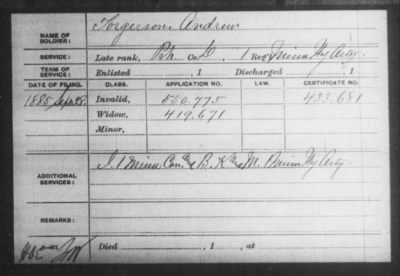 NAME OF SOLDIER: Torgerson, Andrew
SERVICE: Late rank, Co. 1 Reg't Minn Hy Arty.
TERM OF SERVICE: Enlisted , 1 Discharged , 1
DATE OF FILING. CLASS. APPLICATION NO. LAW. CERTIFICATE NO.
1885 Sept 28 Invalid, 550.775 433.681
Widow, 419.671
Minor,
ADDITIONAL SERVICES: 1 Minn. B, K M. Minn Hy Arty
REMARKS:
Died , 1 , at